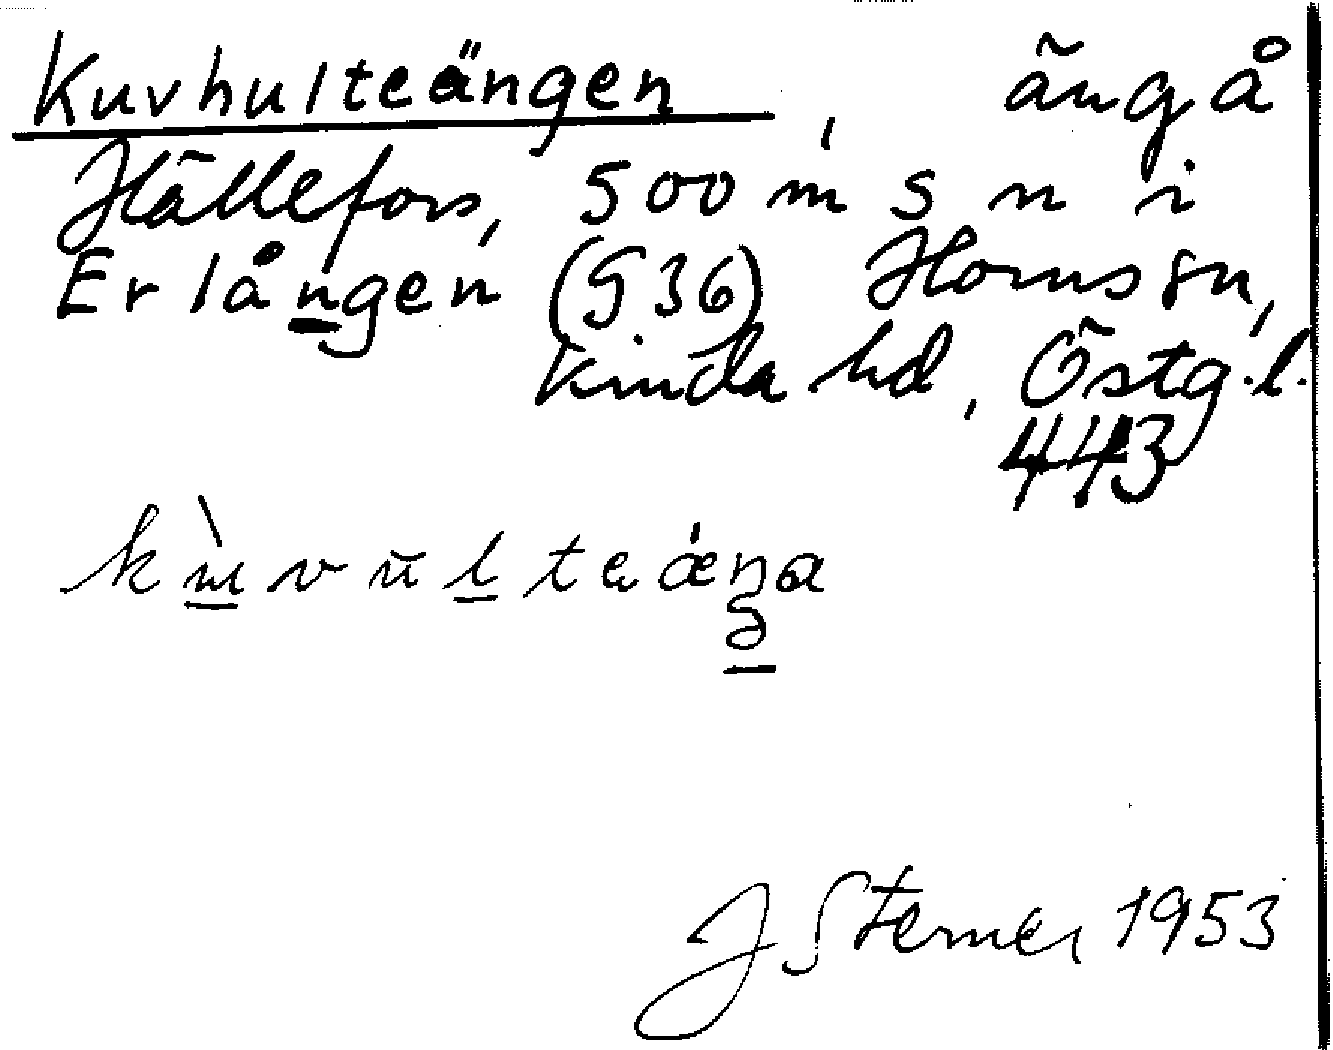 Kuvhulteängen, äng å
Hällefors, 500 m s n i
Erlången (S 36) Horns sn,
Kinda hd, Östg.l.
443
J Sterner 1953